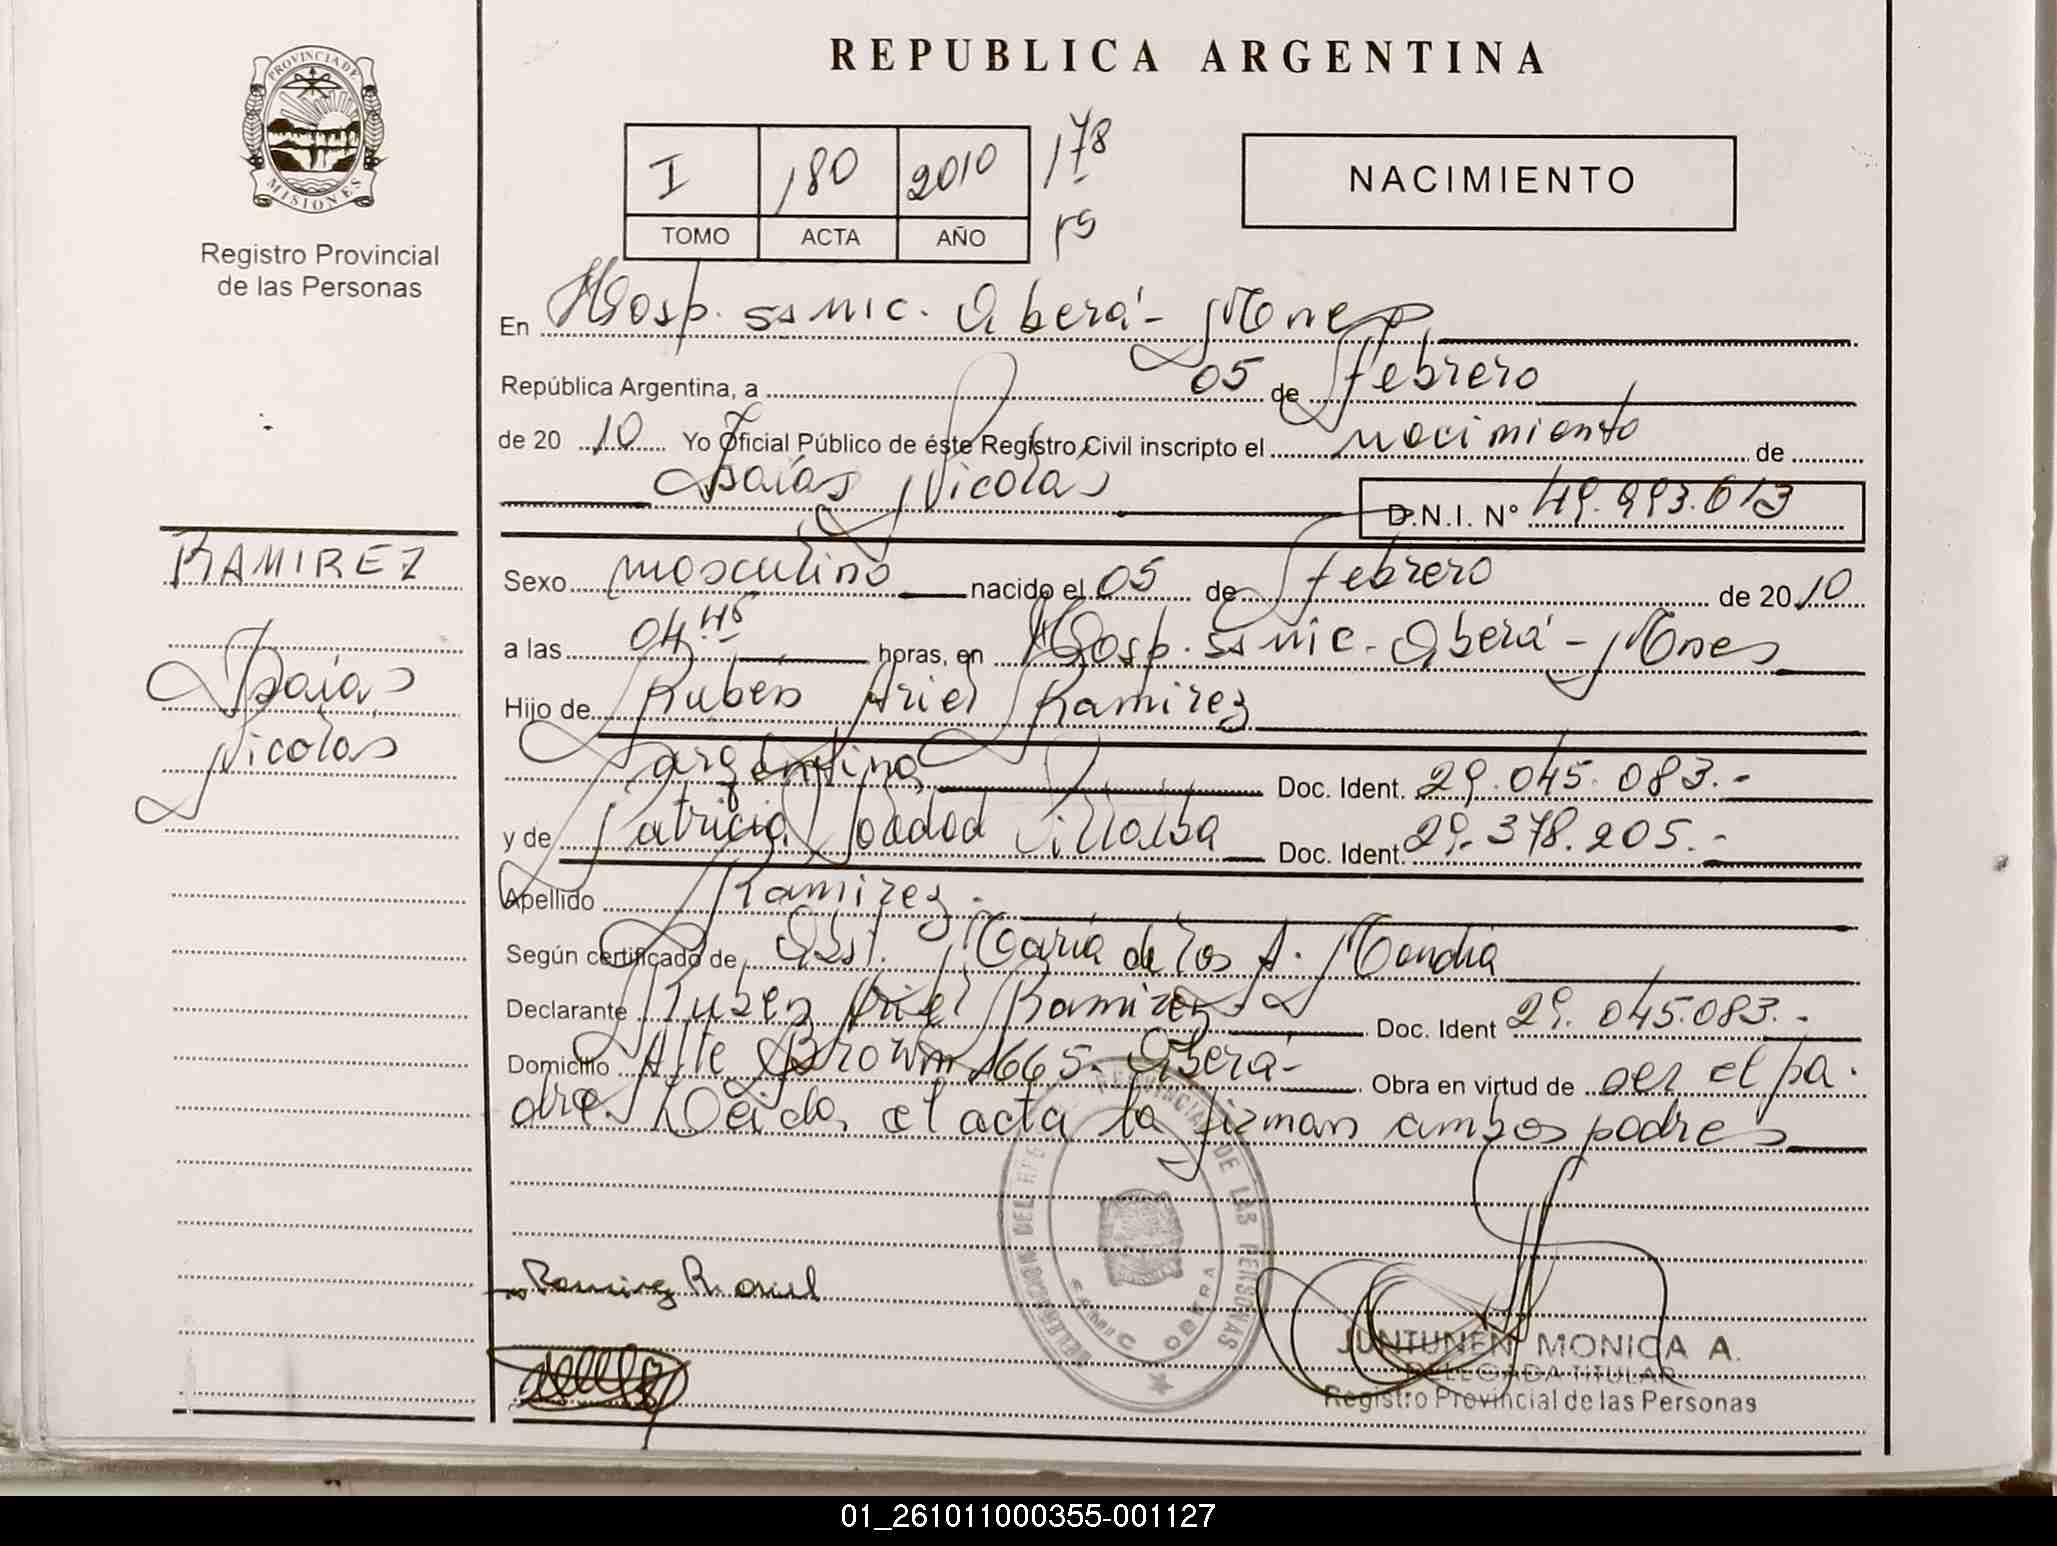 REPUBLICA ARGENTINA
PROVINCIA DE
MISIONES
Registro Provincial
de las Personas
I 180 2010 178
TOMO ACTA AÑO
NACIMIENTO
En Hosp. ssmic. Oberá - Mnes
República Argentina, a 05 de febrero
de 20 10 Yo Oficial Público de éste Registro Civil inscripto el nacimiento de
Isaías Nicolás D.N.I. Nº 49.993.613
RAMIREZ
Isaías
Nicolás
Sexo masculino nacido el 05 de febrero de 20 10
a las 04 45 horas, en Hosp. ssmic. Oberá - Mnes
Hijo de Rubén Ariel Ramirez
argentino Doc. Ident. 29.045.083.-
y de Patricia Soledad Villalba Doc. Ident. 29.378.205.-
Apellido Ramirez.-
Según certificado de Obst. María de los A. Mendia
Declarante Rubén Ariel Ramirez Doc. Ident 29.045.083.-
Domicilio Alte Brown 1665. Oberá- Obra en virtud de ser el pa-
dre. Leída el acta la firman ambos padres
DELEGACION DEL REG PROVINCIAL DE LAS PERSONAS
OBERA
Ramirez R. Ariel
JUNTUNEN MONICA A.
DELEGADA TITULAR
Registro Provincial de las Personas
01_261011000355-001127